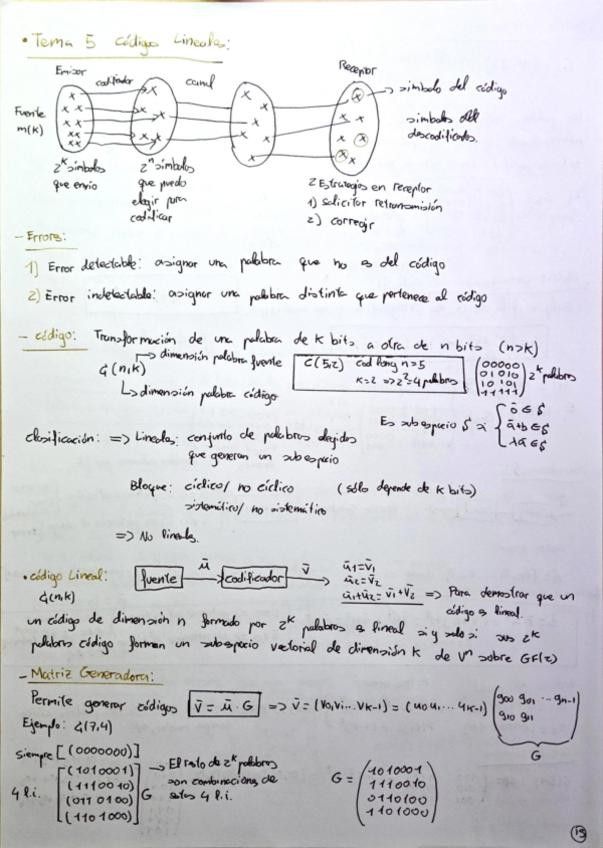 • Tema 5 Códigos Lineales:
Emisor codificador canal Receptor
Fuente m(k)
→ símbolo del código
símbolos del descodificador.
2^k símbolos que envio
2^n símbolos que puedo elegir para codificar
2 Estrategias en receptor
1) Solicitar retransmisión
2) corregir
- Errores:
1) Error detectable: asignar una palabra que no es del código
2) Error indetectable: asignar una palabra distinta que pertenece al código
- código: Transformación de una palabra de k bits a otra de n bits (n>k)
G(n,k) → dimensión palabra fuente
↳ dimensión palabra código
C(5,2) cod long n=5
k=2 => 2²=4 palabras
(00000
01010
10101
11111) 2^k palabras
Es subespacio S si { ō ∈ S
ā+b ∈ S
λā ∈ S
Clasificación: => Lineales: conjunto de palabras elegidos
que generan un subespacio
Bloque: cíclico/ no cíclico (sólo depende de k bits)
sistemático/ no sistemático
=> No lineales.
• código Lineal: fuente ū→ codificador v̄→
G(n,k)
ū1=v̄1
ū2=v̄2
ū1+ū2=v̄1+v̄2 => Para demostrar que un código es lineal.
un código de dimensión n formado por 2^k palabras es lineal si y solo si sus 2^k
palabras código forman un subespacio vectorial de dimensión k de V^n sobre GF(2)
- Matriz Generadora:
Permite generar códigos v̄ = ū · G => v̄ = (v0,v1... vk-1) = (u0 u1 ... uk-1) (g00 g01 ... gn-1
g10 g11)
G
Ejemplo: G(7,4)
siempre [(0000000)]
4 l.i. [(1010001)
(1110010)
(0110100)
(1101000)] G
→ El resto de 2^k palabras
son combinaciones de
estas 4 l.i.
G = (1010001
1110010
0110100
1101000)
13